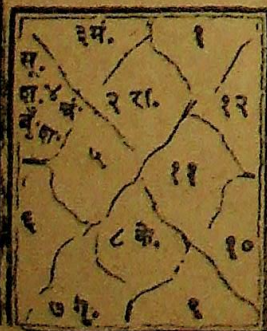 ३मं. १
सू.
४ चं.
२ रा. १२
५
११
६
८ के. १०
७ गु. ९